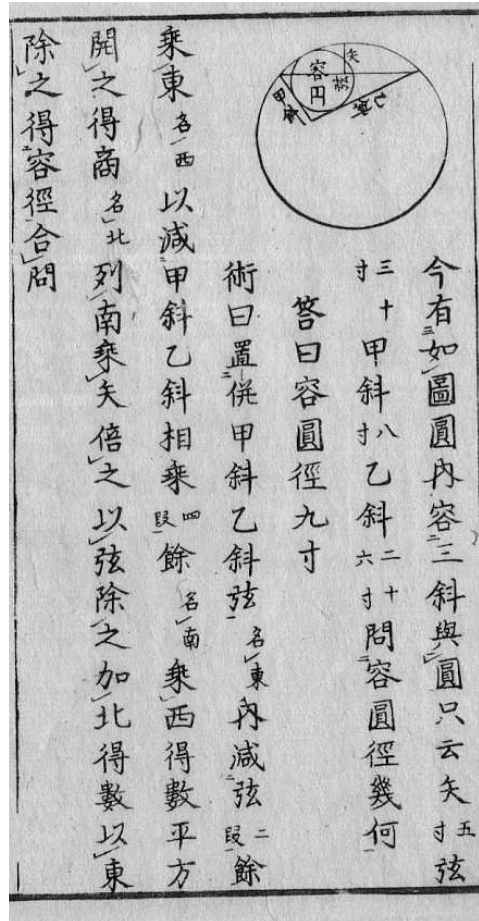 矢
弦
容円
甲斜
乙斜
今有如圖圓内容三斜與圓只云矢五寸弦
三十寸甲斜八寸乙斜二十六寸問容圓徑幾何
答曰容圓徑九寸
術曰置併甲斜乙斜弦名東内減弦二段餘
乘東名西以減甲斜乙斜相乘四段餘名南乘西得數平方
開之得商名北列南乘矢倍之以弦除之加北得數以東
除之得容徑合問